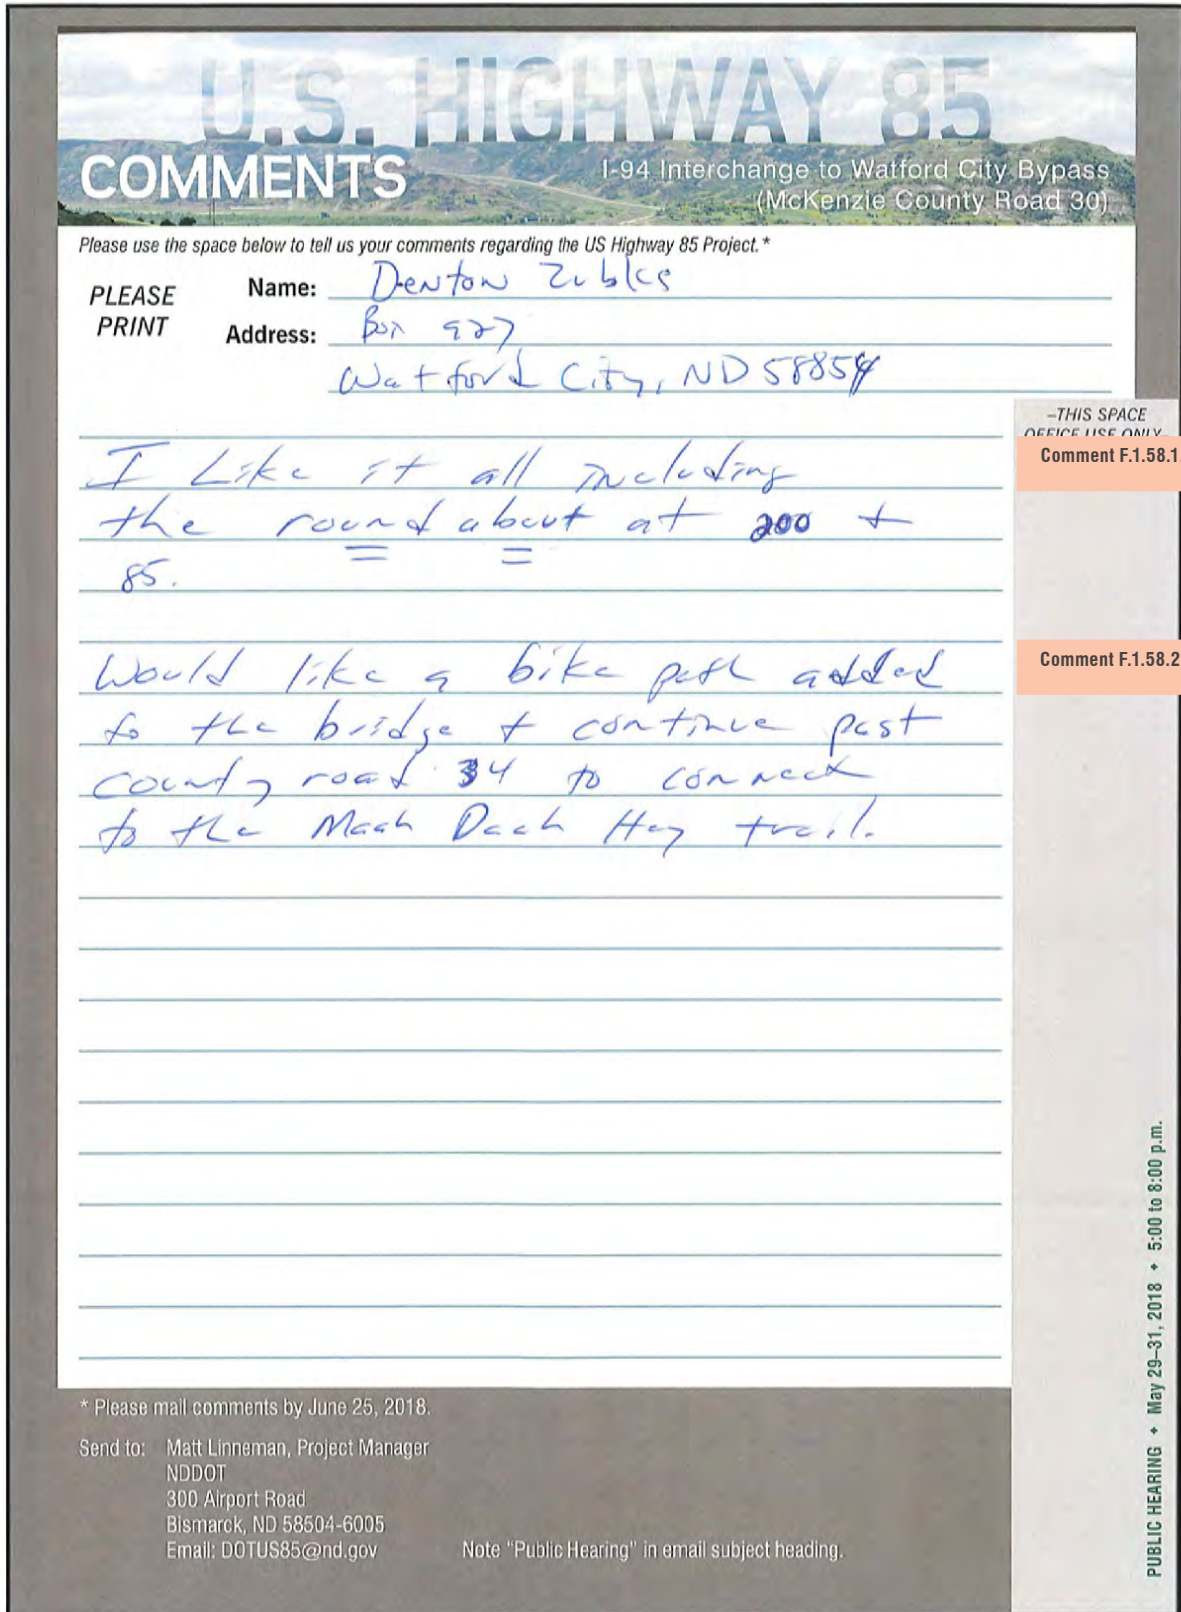 U.S. HIGHWAY 85
COMMENTS
I-94 Interchange to Watford City Bypass
(McKenzie County Road 30)
Please use the space below to tell us your comments regarding the US Highway 85 Project.*
PLEASE
PRINT
Name: Denton Zubke
Address: Box 927
Watford City, ND 58854
–THIS SPACE
OFFICE USE ONLY–
Comment F.1.58.1
I Like it all including
the round about at 200 +
85.
Comment F.1.58.2
Would like a bike path added
to the bridge + continue past
county road 34 to connect
to the Maah Daah Hey trail.
* Please mail comments by June 25, 2018.
Send to: Matt Linneman, Project Manager
NDDOT
300 Airport Road
Bismarck, ND 58504-6005
Email: DOTUS85@nd.gov Note "Public Hearing" in email subject heading.
PUBLIC HEARING + May 29–31, 2018 + 5:00 to 8:00 p.m.